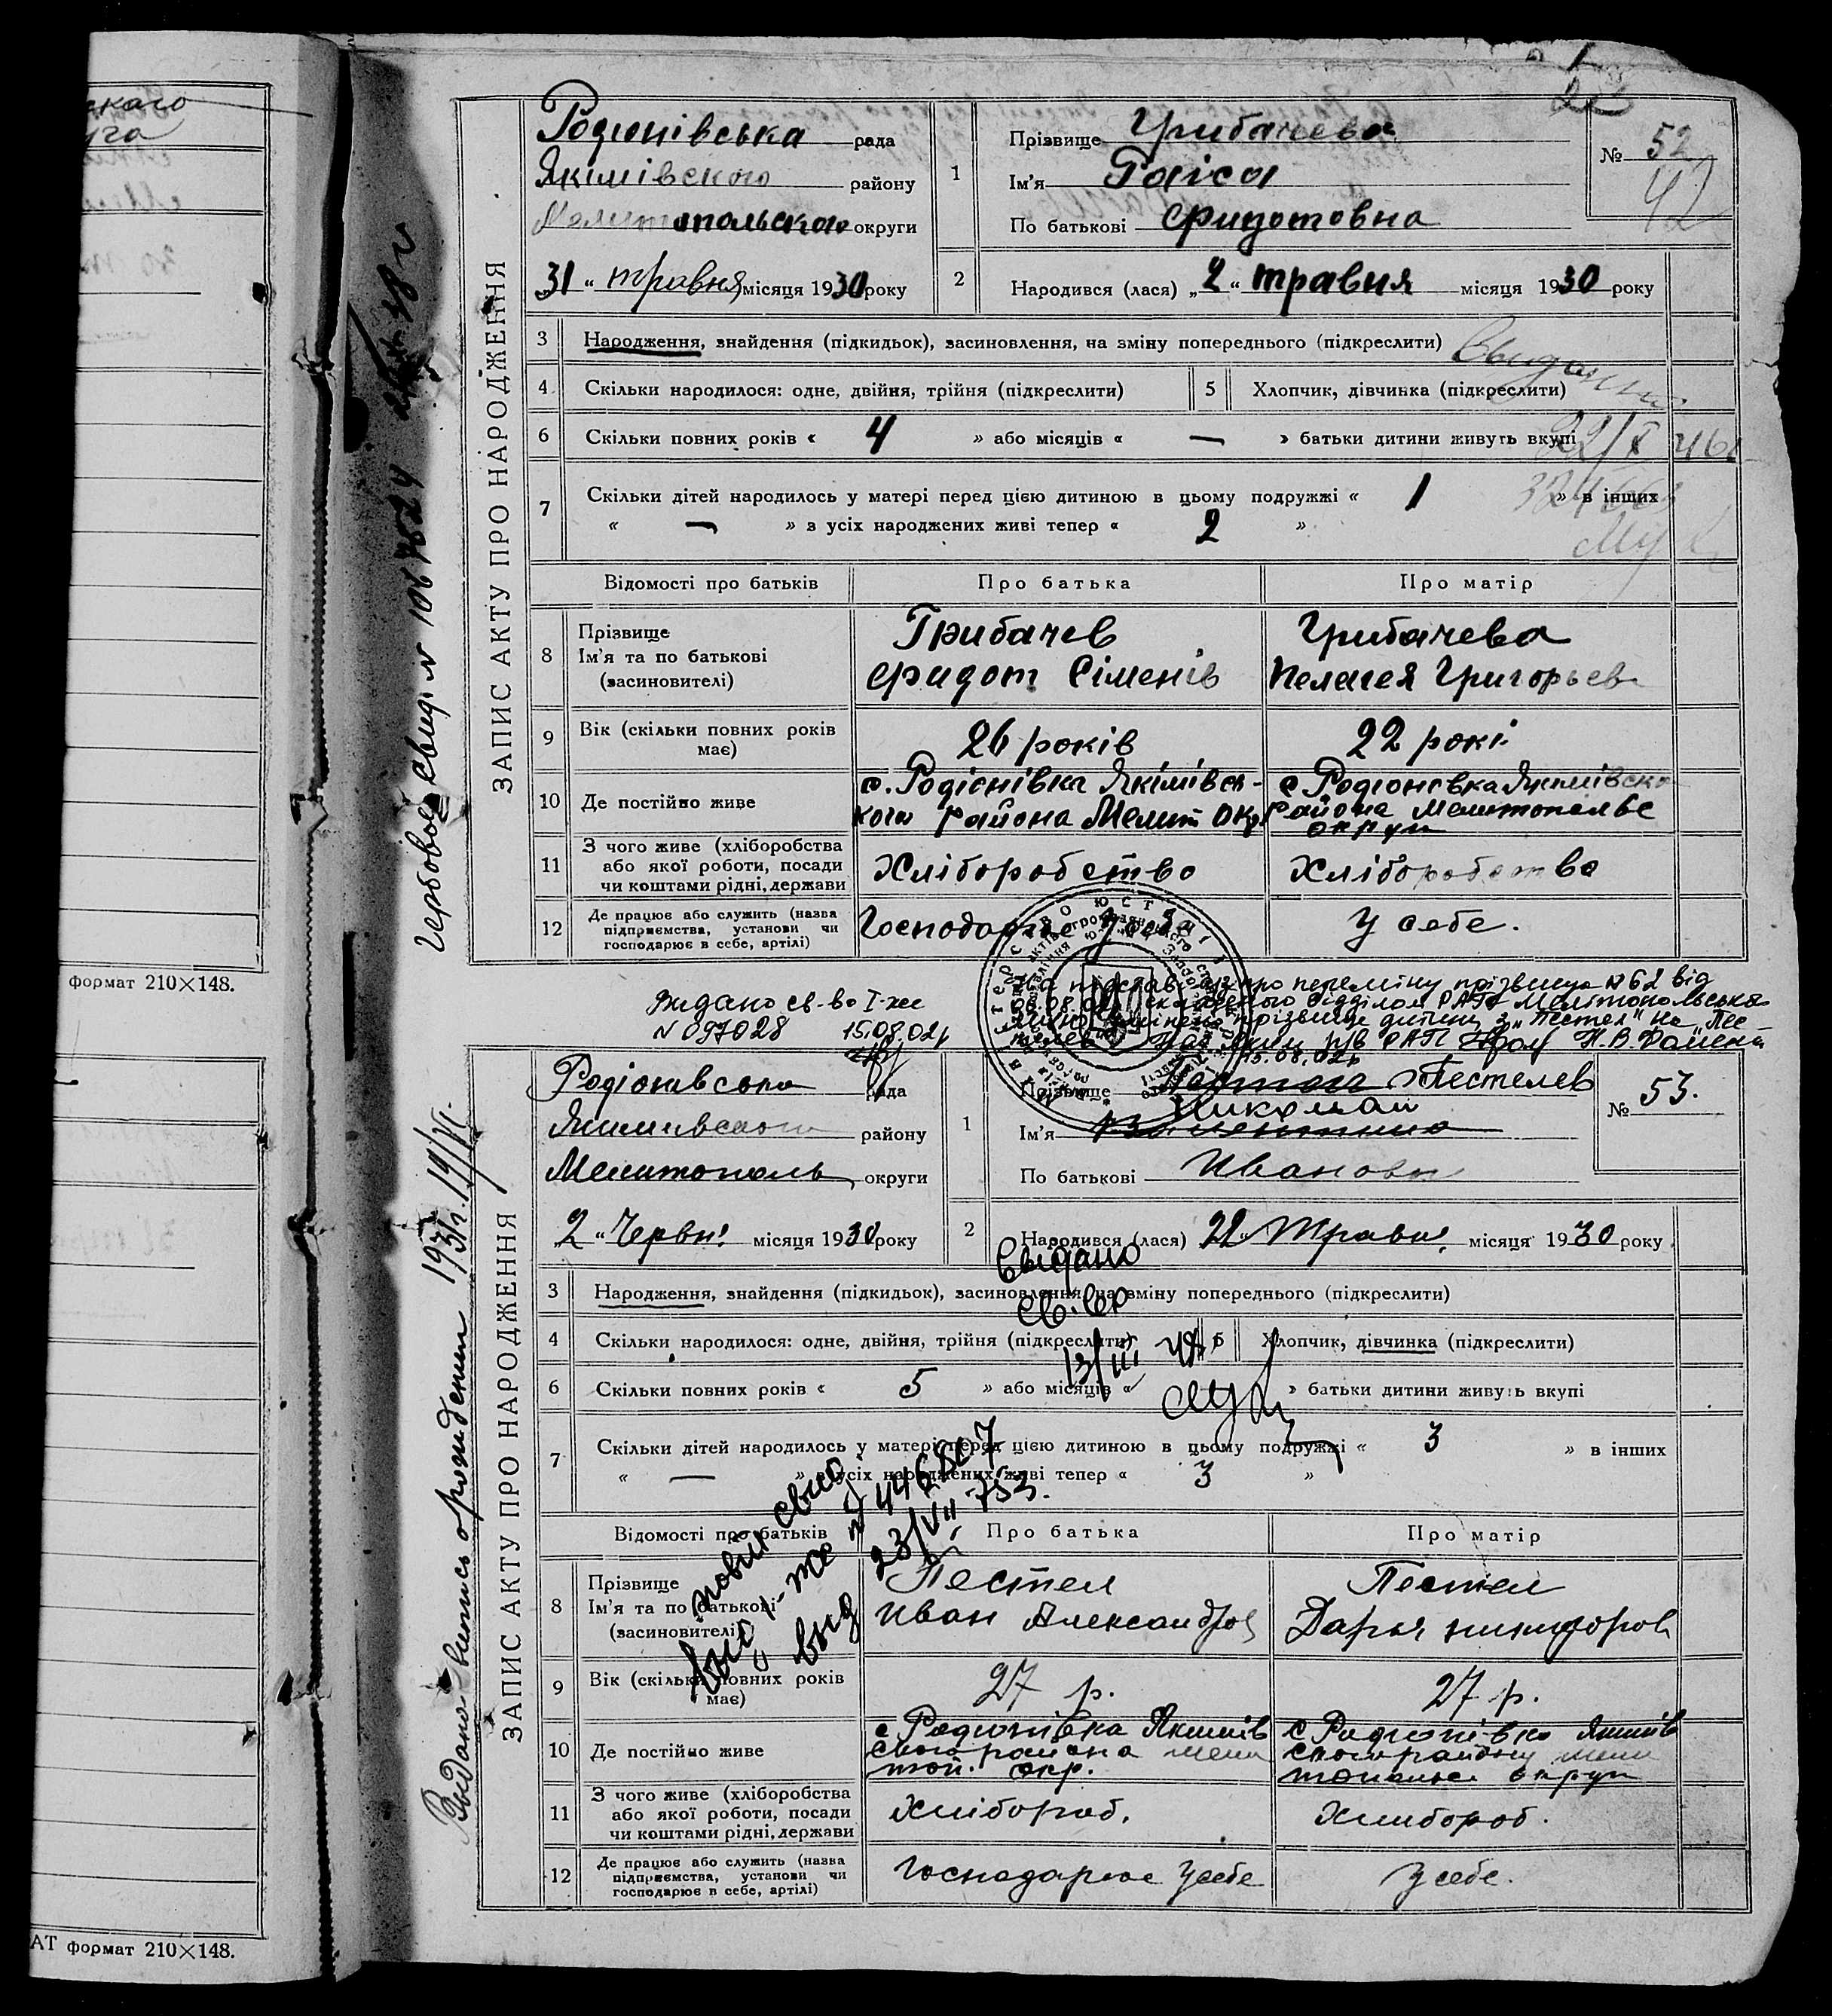 ЗАПИС АКТУ ПРО НАРОДЖЕННЯ
Родіонівська рада
Якімівского району
Мелитопольскаю округи
„31“ травня місяця 1930 року
1
Прізвище Грибачева
Ім'я Раіса
По батькові Фидотовна
№ 52
42
2
Народився (лася) „2“ травня місяця 1930 року
3 Народження, знайдення (підкидьок), засиновлення, на зміну попереднього (підкреслити)
4 Скільки народилося: одне, двійня, трійня (підкреслити) 5 Хлопчик, дівчинка (підкреслити)
6 Скільки повних років « 4 » або місяців « — » батьки дитини живуть вкупі
22/X 46
7 Скільки дітей народилось у матері перед цією дитиною в цьому подружжі « 1 » в інших
« — » з усіх народжених живі тепер « 2 »
Відомості про батьків Про батька Про матір
8 Прізвище
Ім'я та по батькові
(засиновителі)
Грибачев
Фидот Сіменів
Грибачева
Пелагея Григорьев
9 Вік (скільки повних років має)
26 років
22 рокі
10 Де постійно живе
с. Родіонівка Якімівсь-
кого района Мелит окр
с Родіонівка Якимівско
района Мелитопольс
округи
11 З чого живе (хліборобства
або якої роботи, посади
чи коштами рідні, держави
Хліборобство
Хліборобство
12 Де працює або служить (назва
підприємства, установи чи
господарює в себе, артілі)
Господарює у себе
У себе.
формат 210×148.
Гербовое свид N
Видано св-во І-же
N 097028 15.08.02р
На підставі а/з про переміну прізвища N 62 від
складеного відділом РАГС Мелітопольсько
прізвище дитини з „Пестел" на „Пес-
15.08.02р
ЗАПИС АКТУ ПРО НАРОДЖЕННЯ
Родіонівська рада
Якимивского району
Мелитополь округи
„2“ Червн. місяця 1930 року
1
Прізвище Пестелев
Николай
Ім'я Валентина
По батькові Иванов
№ 53.
2
Народився (лася) „22“ Травн. місяця 1930 року
Выдано
3 Народження, знайдення (підкидьок), засиновлення, на зміну попереднього (підкреслити)
4 Скільки народилося: одне, двійня, трійня (підкреслити) 5 Хлопчик, дівчинка (підкреслити)
13/III
6 Скільки повних років « 5 » або місяців « » батьки дитини живуть вкупі
7 Скільки дітей народилось у матері перед цією дитиною в цьому подружжі « 3 » в інших
« — » з усіх народжених живі тепер « 3 »
N 446807
23/VII-753.
Відомості про батьків Про батька Про матір
8 Прізвище
Ім'я та по батькові
(засиновителі)
Пестел
Иван Александров
Пестел
Дарья никифоров
9 Вік (скільки повних років має)
27 р.
27 р.
10 Де постійно живе
с Родіонівка Якимів
ского района мели
топ. окр.
с Родіонівка Якимів
ского району мели
топольс округи
11 З чого живе (хліборобства
або якої роботи, посади
чи коштами рідні, держави
Хлібороб.
Хлибороб.
12 Де працює або служить (назва
підприємства, установи чи
господарює в себе, артілі)
Господарює у себе
у себе.
АТ формат 210×148.
Выдано выпись о рождении 1931г. 19/VI.